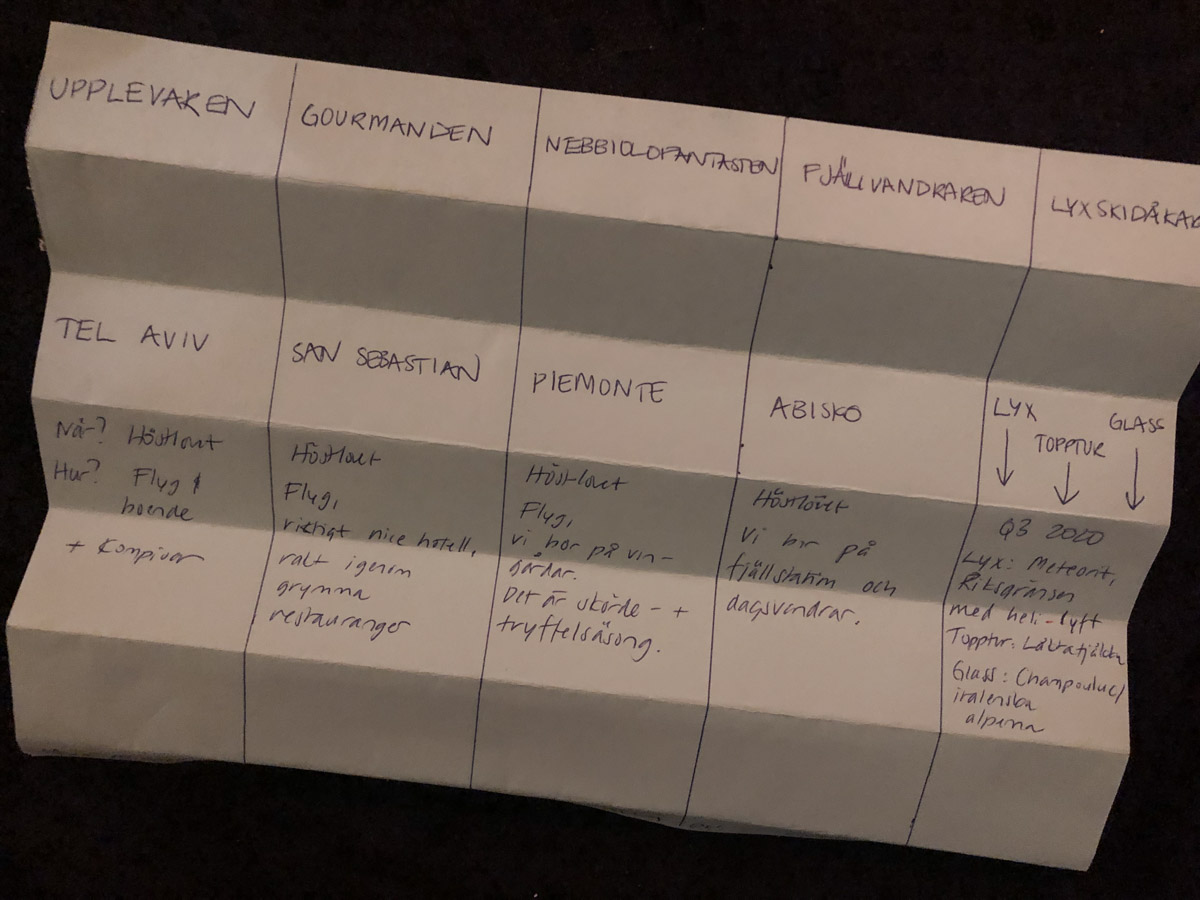 UPPLEVAREN
TEL AVIV
När? Höstlovet
Hur? Flyg &
boende
+ Kompisar
GOURMANDEN
SAN SEBASTIAN
Höstlovet
Flyg,
riktigt nice hotell,
ralt igenom
grymma
restauranger
NEBBIOLOFANTASTEN
PIEMONTE
Höstlovet
Flyg,
vi bor på vin-
gårdar.
Det är skörde- +
tryffelsäsong.
FJÄLLVANDRAREN
ABISKO
Höstlovet
Vi bor på
fjällstation och
dagsvandrar.
LYXSKIDÅKAR
LYX
TOPPTUR
GLASS
Q3 2020
Lyx: Meteorit,
Riksgränsen
med heli-lyft
Topptur: Låktatjåkka
Glass: Champoluc/
italienska
alperna